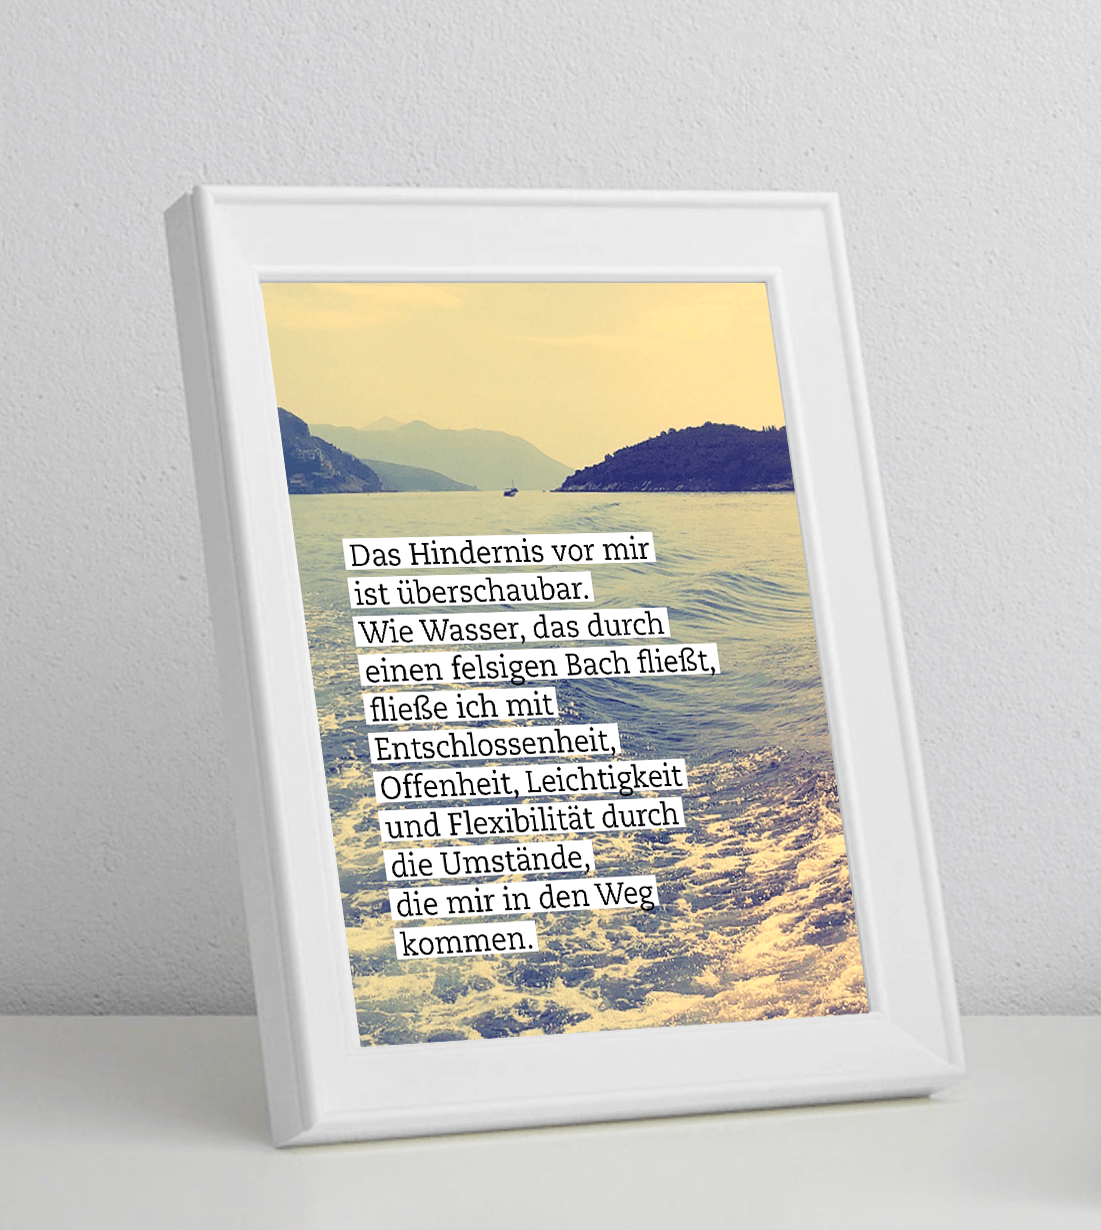 Das Hindernis vor mir
ist überschaubar.
Wie Wasser, das durch
einen felsigen Bach fließt,
fließe ich mit
Entschlossenheit,
Offenheit, Leichtigkeit
und Flexibilität durch
die Umstände,
die mir in den Weg
kommen.